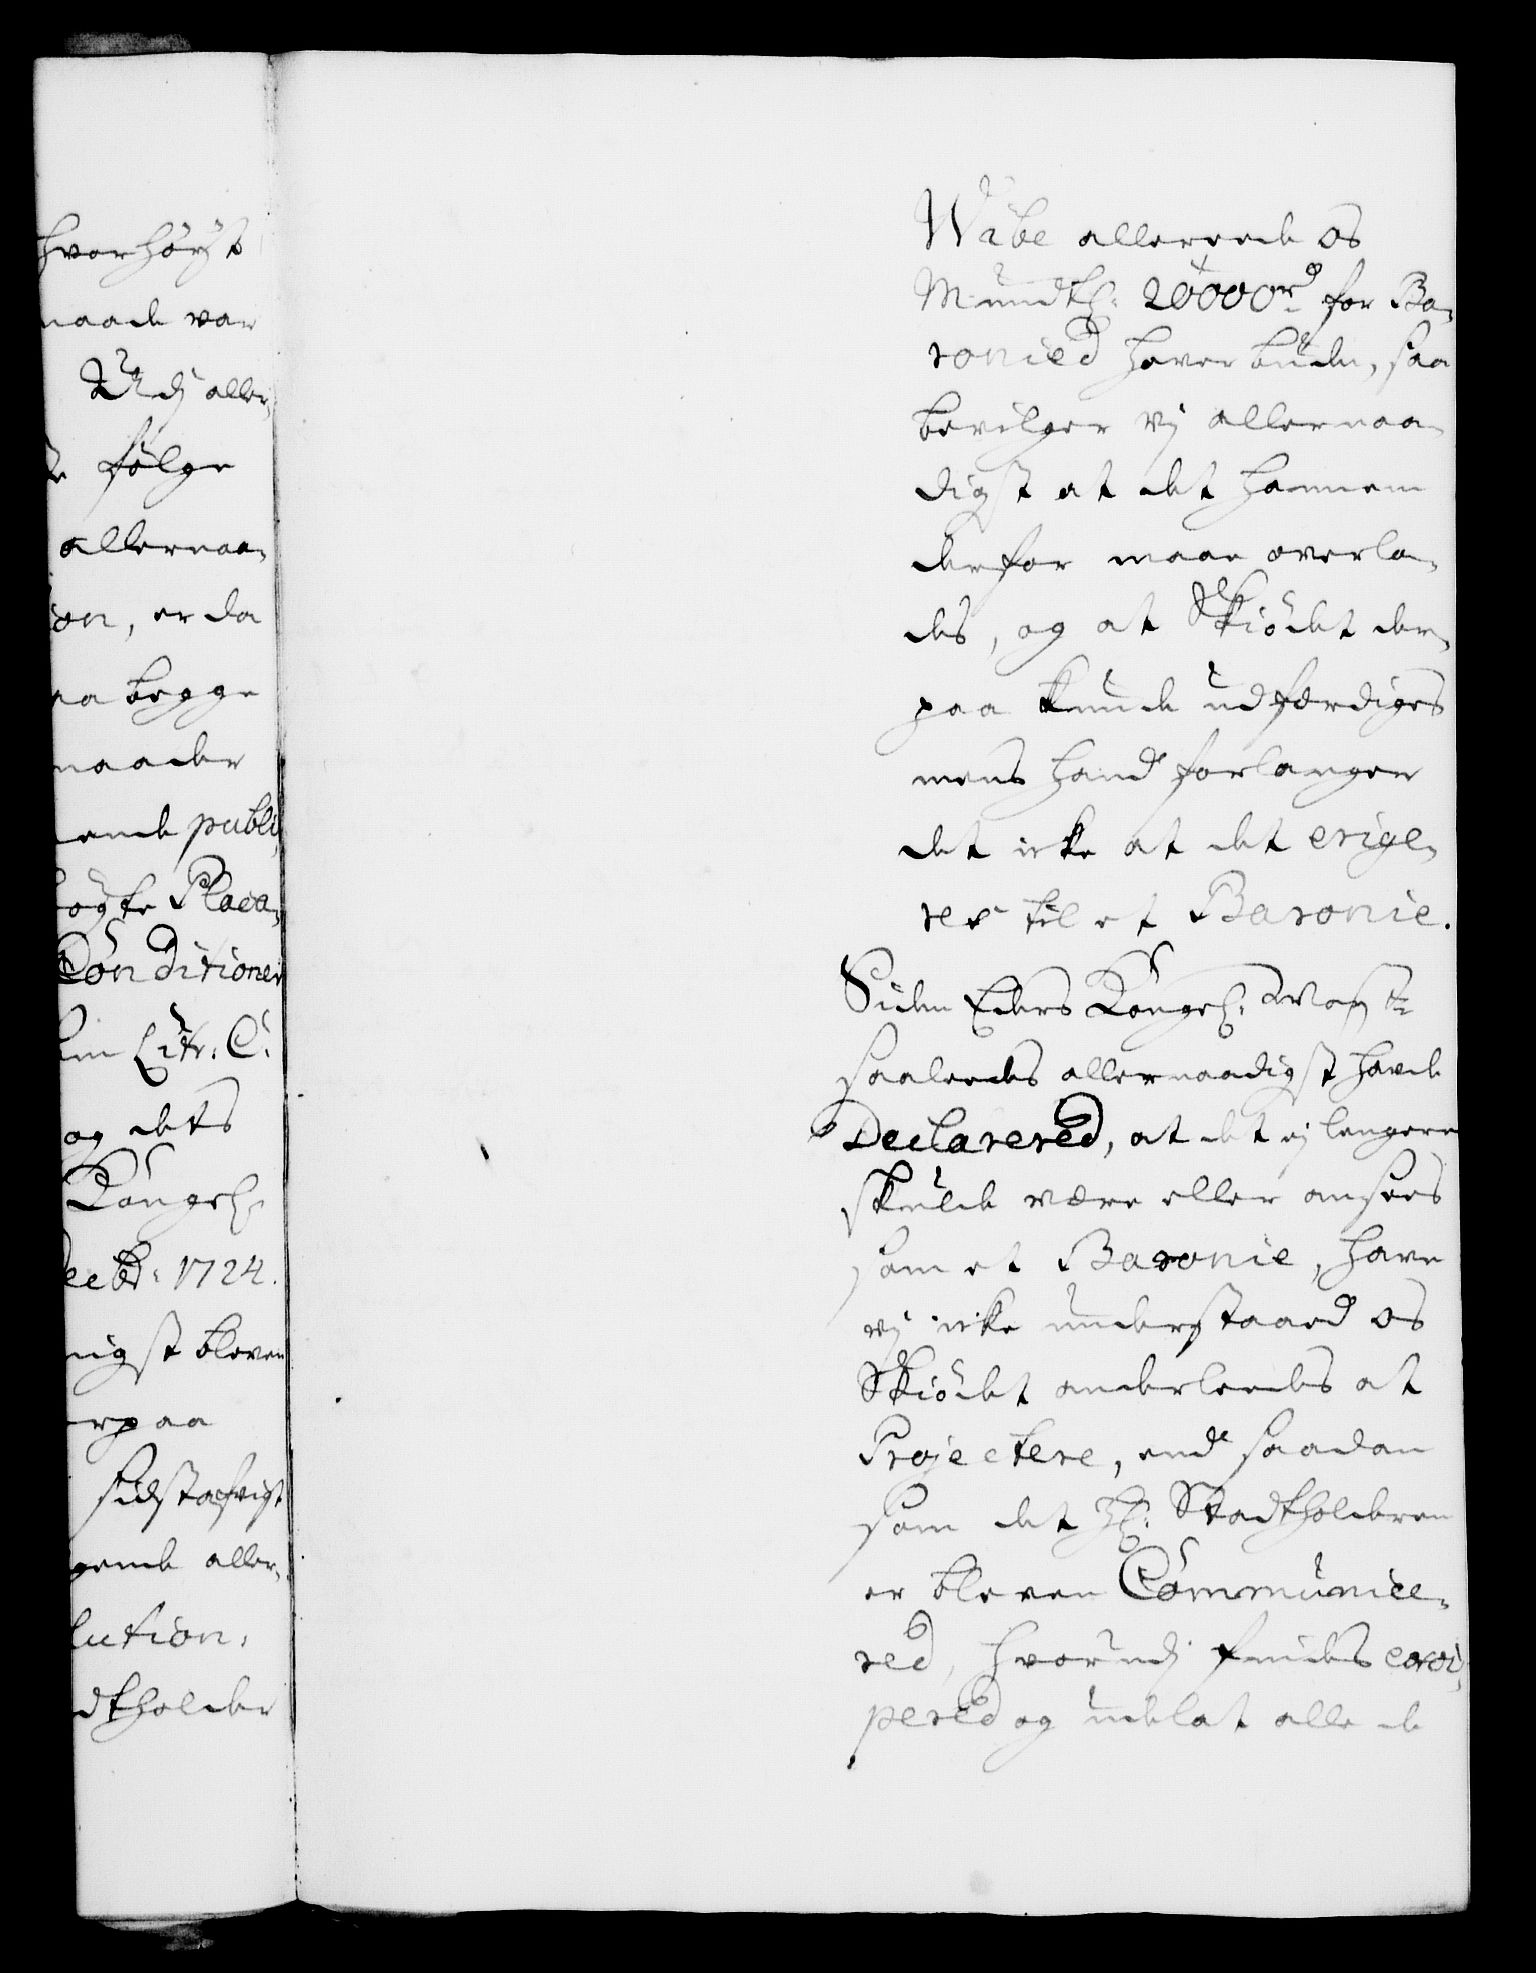 hvorhöyst
naade var
Udj aller,
følge
allernaa,
ion, er da
aa begge
maader
ende publi,
Placa,
Conditioner
Litr: C:
og dets
Kongel:
Decbr: 1724.
nigst bleven
erpaa
sidst afvigt
gende aller,
lution,
dtholder
Wibe allereede os
Mundtl: 20000 rd for Ba,
ronied haver buden, saa
bevilger vj allernaa,
digst at det hannem
derfor maae overla,
des, og at Skiödet der,
paa kunde udfærdiges
mens hand forlanger
det icke at det erige,
res til et Baronie.
Siden Eders Kongel: Mayst:
saaleedes allernaadigst havde
Declarered, at det ej lengere
skulde være eller ansees
som et Baronie, have
vj icke understaaed os
Skiödet anderleedes at
Projectere, end saadan
som det Hr: Stadtholderen
er bleven Communice,
red, hvorudj findes
pered og udelat alle de